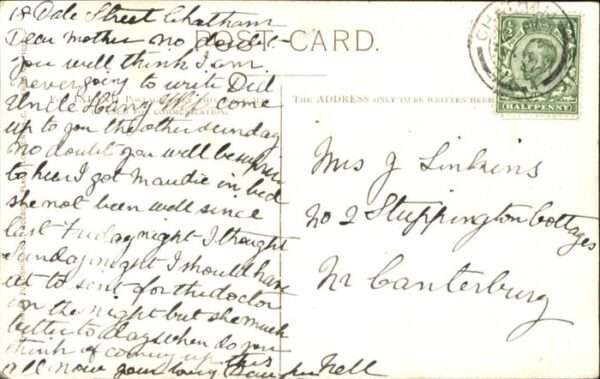 18 Dale Street Chatham
Dear Mother no doubt
POST CARD.
you will think I am
never going to write Did
Uncle Harry come
up to you the other Sunday
no doubt you will be
to hear I got Maudie in bed
she not been well since
last Friday night I thought
Sunday night I should have
at to sent for the doctor
in the night but she much
better to day when do you
think of coming up this
all now your loving Daughter Nell
THE ADDRESS ONLY TO BE WRITTEN HERE
CHATHAM
HALFPENNY
Mrs J Linkins
No 2 Stuppington Cottages
Nr Canterbury